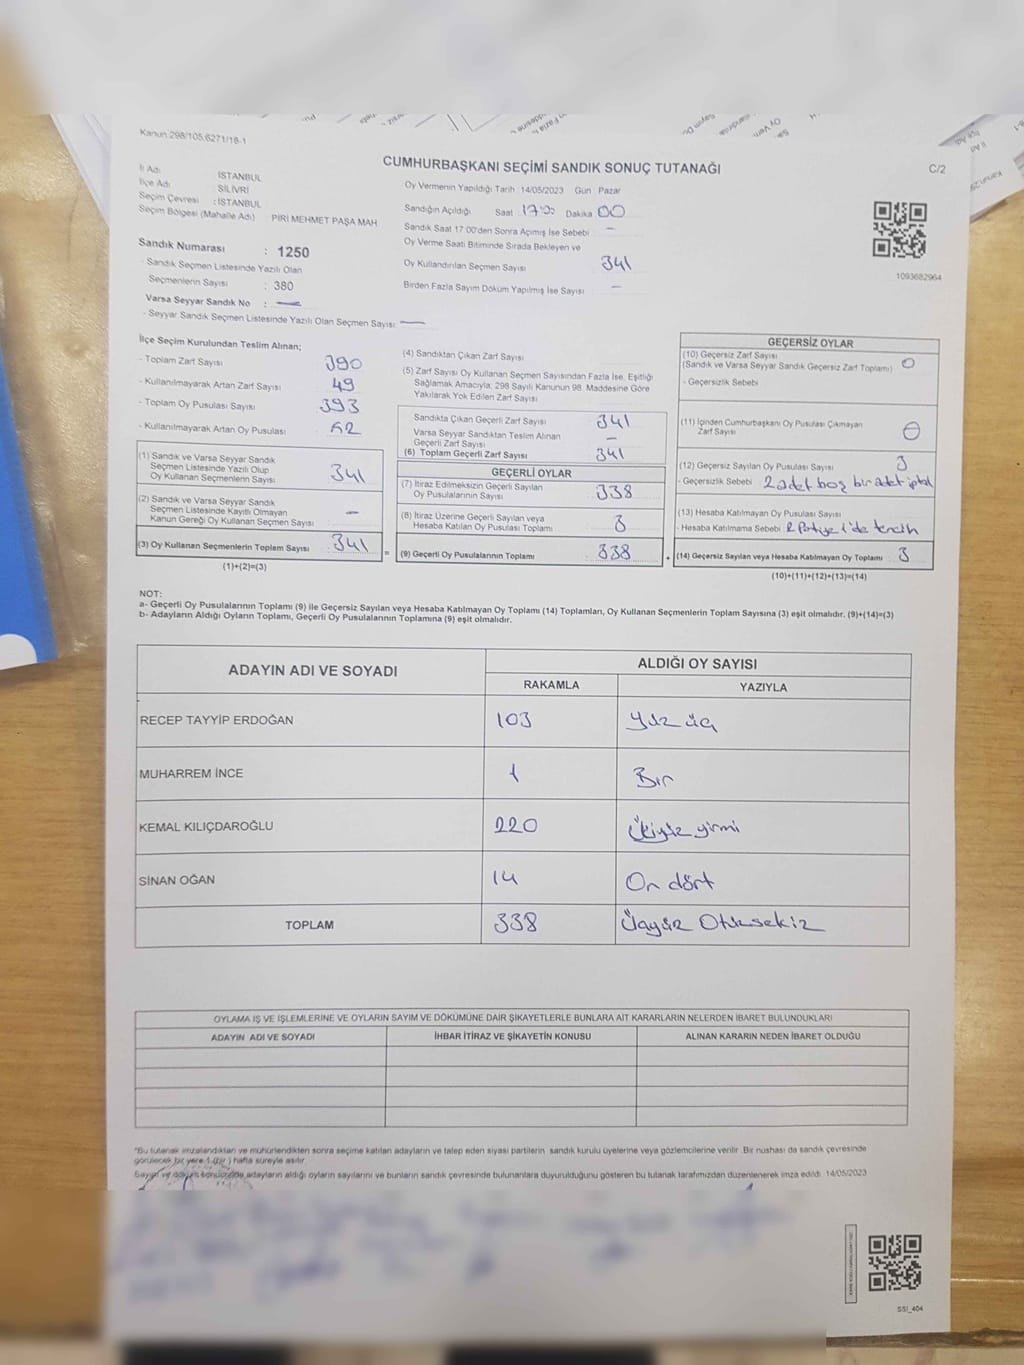 Kanun:298/105,6271/18-1
CUMHURBAŞKANI SEÇİMİ SANDIK SONUÇ TUTANAĞI
C/2
İl Adı : İSTANBUL
İlçe Adı : SİLİVRİ
Seçim Çevresi : İSTANBUL
Seçim Bölgesi (Mahalle Adı) : PİRİ MEHMET PAŞA MAH
Sandık Numarası : 1250
- Sandık Seçmen Listesinde Yazılı Olan
Seçmenlerin Sayısı : 380
Varsa Seyyar Sandık No : —
- Seyyar Sandık Seçmen Listesinde Yazılı Olan Seçmen Sayısı: —
Oy Vermenin Yapıldığı Tarih :14/05/2023 Gün : Pazar
Sandığın Açıldığı Saat 17:00 Dakika 00
Sandık Saat 17:00'den Sonra Açılmış İse Sebebi : –
Oy Verme Saati Bitiminde Sırada Bekleyen ve
Oy Kullandırılan Seçmen Sayısı 341
Birden Fazla Sayım Döküm Yapılmış İse Sayısı : –
1093682964
İlçe Seçim Kurulundan Teslim Alınan;
- Toplam Zarf Sayısı 390
- Kullanılmayarak Artan Zarf Sayısı 49
- Toplam Oy Pusulası Sayısı 393
- Kullanılmayarak Artan Oy Pusulası 52
(1) Sandık ve Varsa Seyyar Sandık
Seçmen Listesinde Yazılı Olup
Oy Kullanan Seçmenlerin Sayısı 341
(2) Sandık ve Varsa Seyyar Sandık
Seçmen Listesinde Kayıtlı Olmayan
Kanun Gereği Oy Kullanan Seçmen Sayısı –
(3) Oy Kullanan Seçmenlerin Toplam Sayısı 341
(1)+(2)=(3)
=
(4) Sandıktan Çıkan Zarf Sayısı
(5) Zarf Sayısı Oy Kullanan Seçmen Sayısından Fazla İse, Eşitliği
Sağlamak Amacıyla; 298 Sayılı Kanunun 98. Maddesine Göre
Yakılarak Yok Edilen Zarf Sayısı
Sandıkta Çıkan Geçerli Zarf Sayısı 341
Varsa Seyyar Sandıktan Teslim Alınan
Geçerli Zarf Sayısı –
(6) Toplam Geçerli Zarf Sayısı 341
GEÇERLİ OYLAR
(7) İtiraz Edilmeksizin Geçerli Sayılan
Oy Pusulalarının Sayısı 338
(8) İtiraz Üzerine Geçerli Sayılan veya
Hesaba Katılan Oy Pusulası Toplamı 3
(9) Geçerli Oy Pusulalarının Toplamı 338
+
GEÇERSİZ OYLAR
(10) Geçersiz Zarf Sayısı
(Sandık ve Varsa Seyyar Sandık Geçersiz Zarf Toplamı) 0
- Geçersizlik Sebebi
(11) İçinden Cumhurbaşkanı Oy Pusulası Çıkmayan
Zarf Sayısı 0
(12) Geçersiz Sayılan Oy Pusulası Sayısı 3
- Geçersizlik Sebebi 2 adet boş bir adet iptal
(13) Hesaba Katılmayan Oy Pusulası Sayısı
- Hesaba Katılmama Sebebi 2 Partiye 1'de tercih
(14) Geçersiz Sayılan veya Hesaba Katılmayan Oy Toplamı 3
(10)+(11)+(12)+(13)=(14)
NOT:
a- Geçerli Oy Pusulalarının Toplamı (9) ile Geçersiz Sayılan veya Hesaba Katılmayan Oy Toplamı (14) Toplamları, Oy Kullanan Seçmenlerin Toplam Sayısına (3) eşit olmalıdır. (9)+(14)=(3)
b- Adayların Aldığı Oyların Toplamı, Geçerli Oy Pusulalarının Toplamına (9) eşit olmalıdır.
ADAYIN ADI VE SOYADI
ALDIĞI OY SAYISI
RAKAMLA
YAZIYLA
RECEP TAYYİP ERDOĞAN 103 Yüz üç
MUHARREM İNCE 1 Bir
KEMAL KILIÇDAROĞLU 220 İkiyüz yirmi
SİNAN OĞAN 14 On dört
TOPLAM 338 Üçyüz Otuzsekiz
OYLAMA İŞ VE İŞLEMLERİNE VE OYLARIN SAYIM VE DÖKÜMÜNE DAİR ŞİKAYETLERLE BUNLARA AİT KARARLARIN NELERDEN İBARET BULUNDUKLARI
ADAYIN ADI VE SOYADI
İHBAR İTİRAZ VE ŞİKAYETİN KONUSU
ALINAN KARARIN NEDEN İBARET OLDUĞU
*Bu tutanak imzalandıktan ve mühürlendikten sonra seçime katılan adayların ve talep eden siyasi partilerin sandık kurulu üyelerine veya gözlemcilerine verilir. Bir nüshası da sandık çevresinde
görülecek bir yere 1 (bir ) hafta süreyle asılır.
Sayım ve döküm sonucunda adayların aldığı oyların sayılarını ve bunların sandık çevresinde bulunanlara duyurulduğunu gösteren bu tutanak tarafımızdan düzenlenerek imza edildi. 14/05/2023
SSI_404